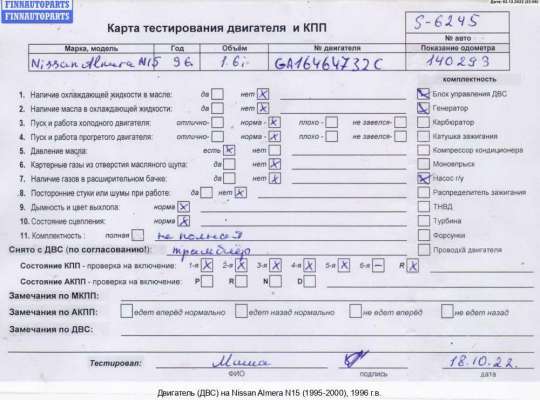 FINNAUTOPARTS
FINNAUTOPARTS
Карта тестирования двигателя и КПП
S-6245
№ авто
Марка, модель Год Объём № двигателя Показание одометра
Nissan Almera N15 96 1.6i GA16464732C 140293
комплектность
1. Наличие охлаждающей жидкости в масле: да нет X Блок управления ДВС
2. Наличие масла в охлаждающей жидкости: да нет X Генератор
3. Пуск и работа холодного двигателя: отлично- норма - X плохо - не завелся- Карбюратор
4. Пуск и работа прогретого двигателя: отлично- норма - X плохо - не завелся- Катушка зажигания
5. Давление масла: есть X нет Компрессор кондиционера
6. Картерные газы из отверстия масляного щупа: да нет X Моновпрыск
7. Наличие газов в расширительном бачке: да нет X Насос г/у
8. Посторонние стуки или шумы при работе: да нет X Распределитель зажигания
9. Дымность и цвет выхлопа: норма X ТНВД
10. Состояние сцепления: норма X Турбина
11. Комплектность: полная не полная Форсунки
Снято с ДВС (по согласованию!): трамблёр Проводка двигателя
Состояние КПП - проверка на включение: 1-я X 2-я X 3-я X 4-я X 5-я X 6-я – R X
Состояние АКПП - проверка на включение: P R N D
Замечания по МКПП:
Замечания по АКПП: едет вперёд нормально едет назад нормально не едет вперёд не едет назад
Замечания по ДВС:
Тестировал: Миша 18.10.22.
ФИО подпись дата
Двигатель (ДВС) на Nissan Almera N15 (1995-2000), 1996 г.в.